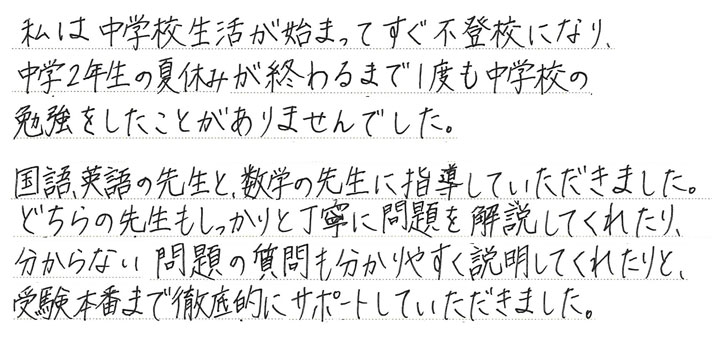 私は中学校生活が始まってすぐ不登校になり、
中学2年生の夏休みが終わるまで1度も中学校の
勉強をしたことがありませんでした。
国語、英語の先生と、数学の先生に指導していただきました。
どちらの先生もしっかりと丁寧に問題を解説してくれたり、
分からない問題の質問も分かりやすく説明してくれたりと、
受験本番まで徹底的にサポートしていただきました。